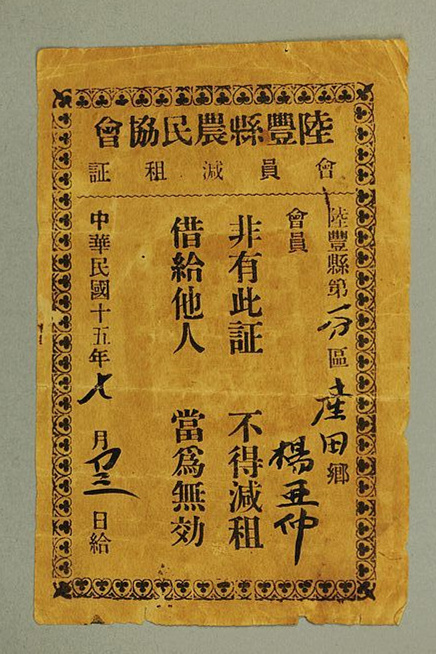 陸豐縣農民協會
會員減租証
陸豐縣第一區田鄉
會員 楊亚仲
非有此証 不得減租
借給他人 當為無効
中華民國十五年七月 日給